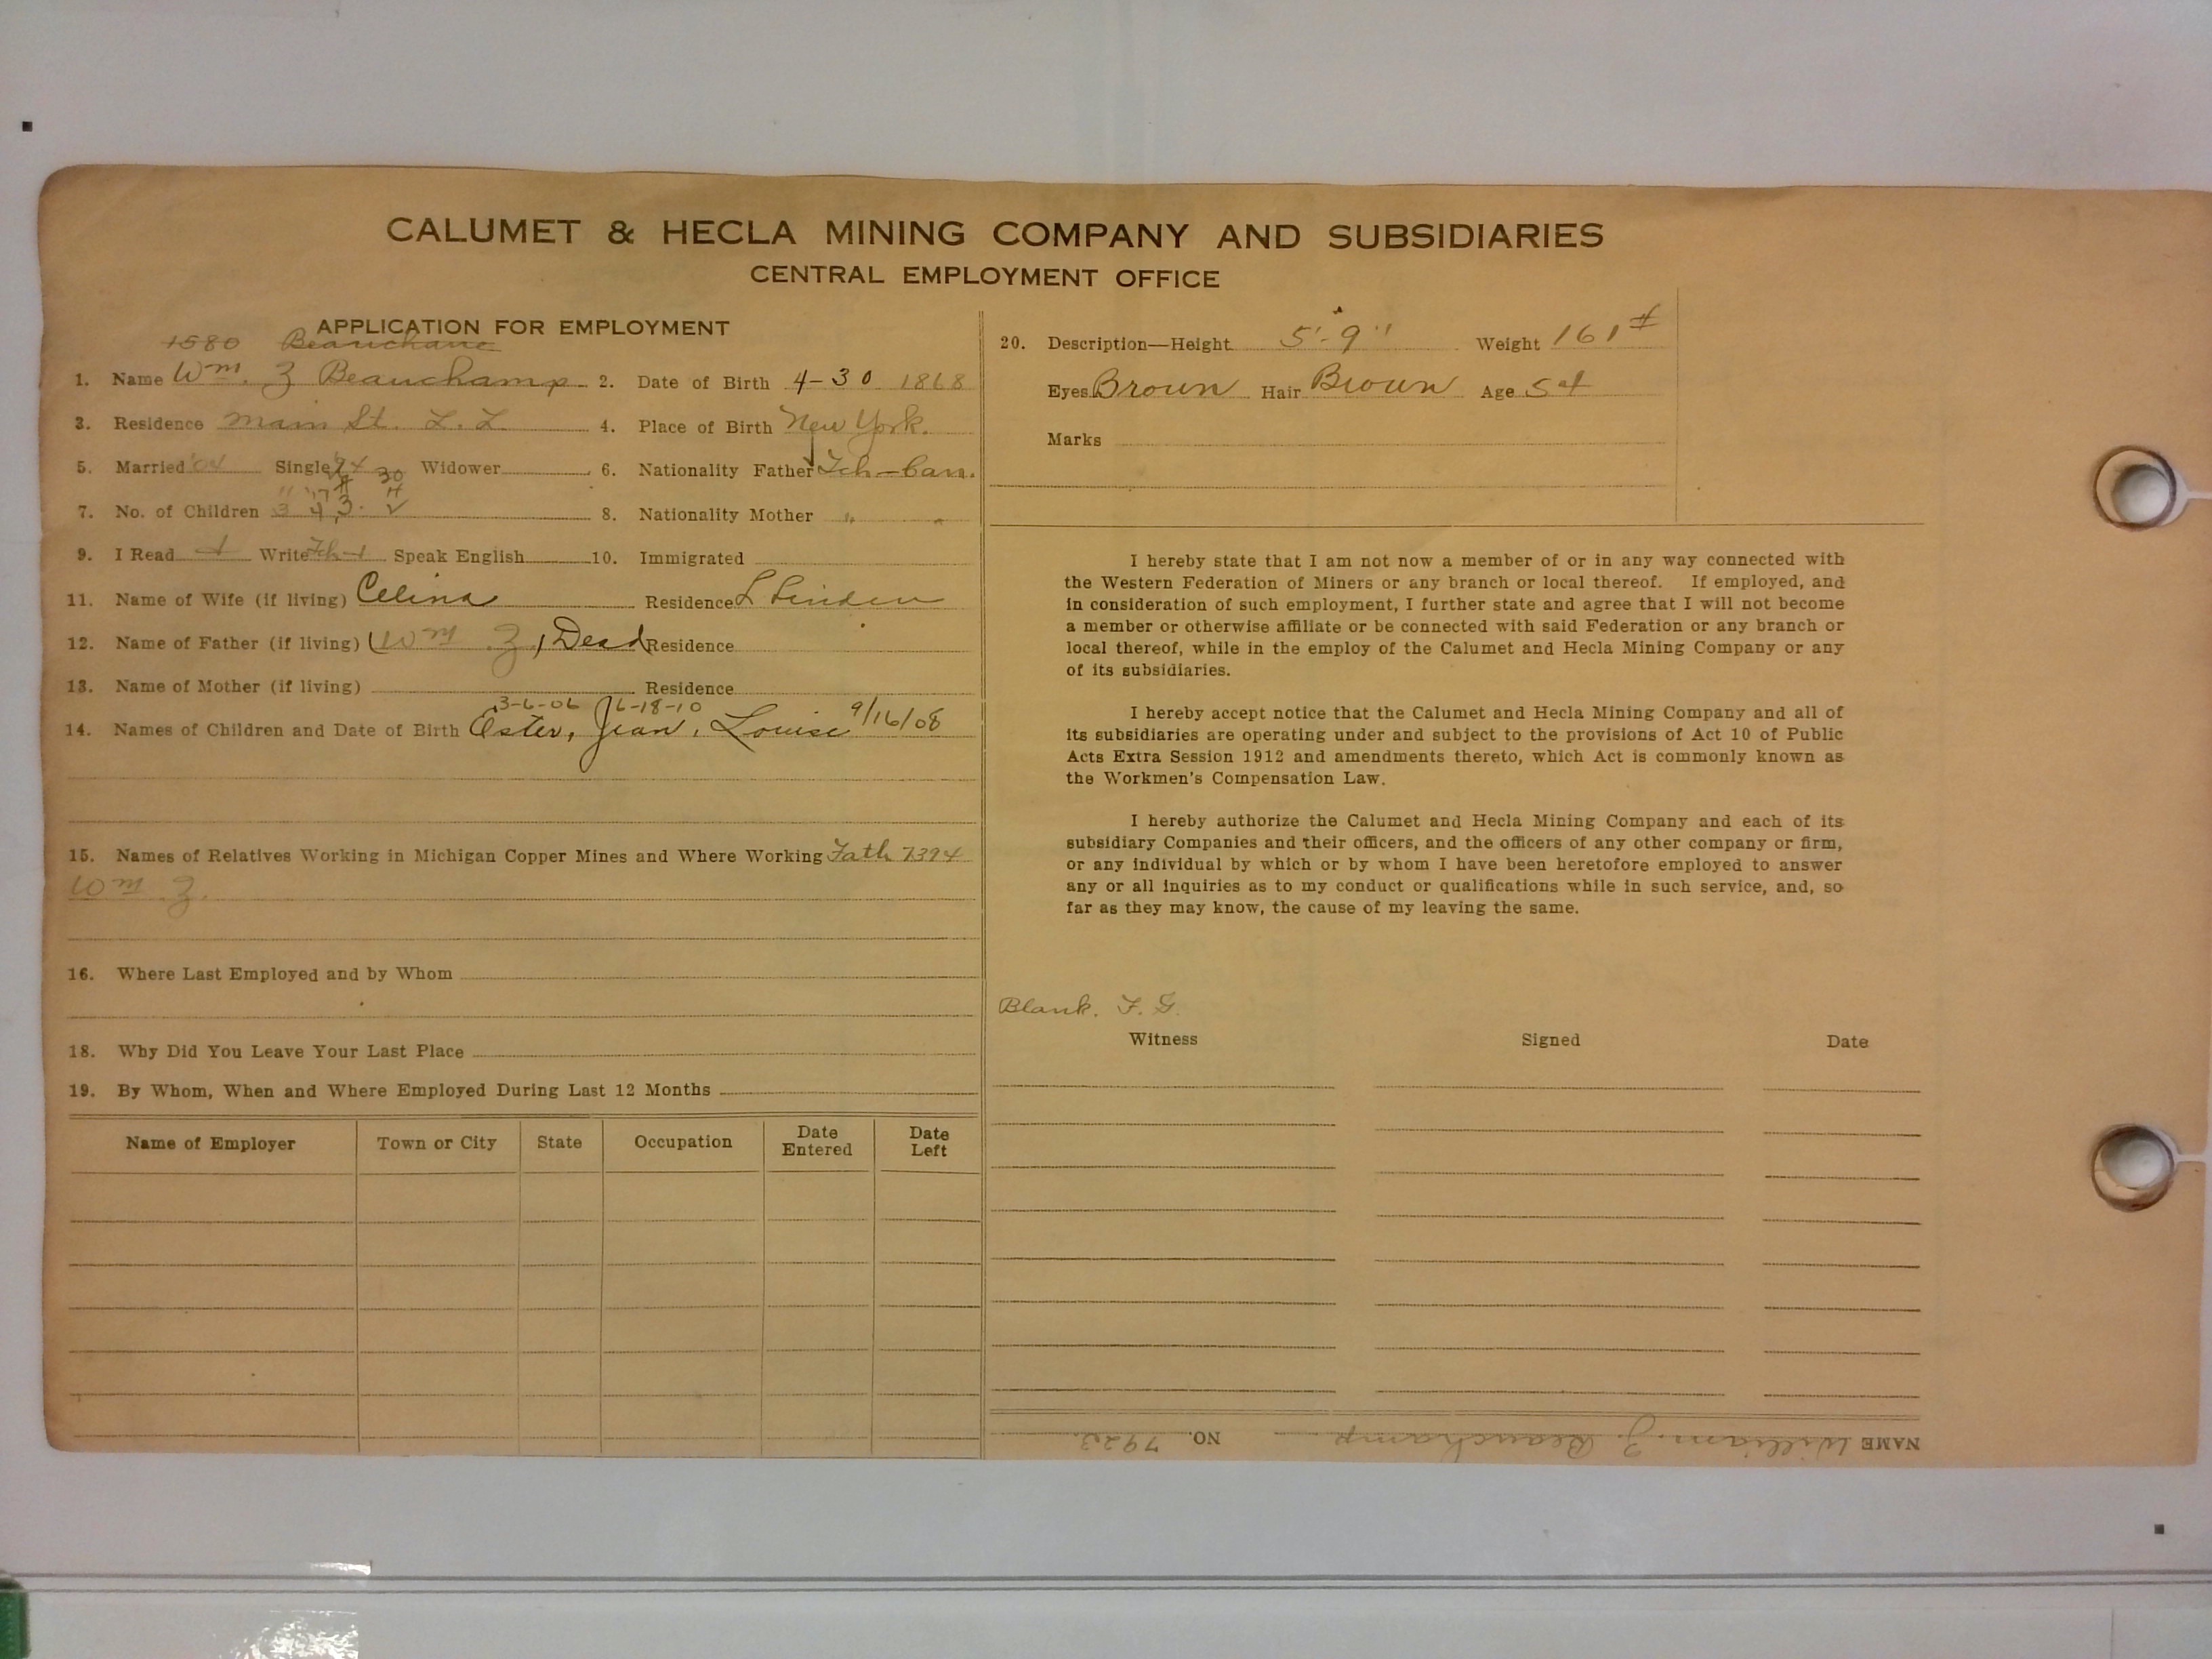 CALUMET & HECLA MINING COMPANY AND SUBSIDIARIES
CENTRAL EMPLOYMENT OFFICE
APPLICATION FOR EMPLOYMENT
1580 Beauchane
1. Name Wm. Z Beauchamp 2. Date of Birth 4-30 1868
3. Residence Main St. L. L. 4. Place of Birth New York.
5. Married '04 Single Widower 6. Nationality Father Fch-Can.
7. No. of Children 3 4, 3. 2 8. Nationality Mother " "
9. I Read Write Speak English 10. Immigrated
11. Name of Wife (if living) Celina Residence L Linden
12. Name of Father (if living) (Wm Z) Dead Residence
13. Name of Mother (if living) Residence
3-6-06 6-18-10
14. Names of Children and Date of Birth Ester, Jean, Louise 9/16/08
15. Names of Relatives Working in Michigan Copper Mines and Where Working Fath 7394
Wm Z.
16. Where Last Employed and by Whom
18. Why Did You Leave Your Last Place
19. By Whom, When and Where Employed During Last 12 Months
Name of Employer Town or City State Occupation Date Entered Date Left
20. Description—Height 5'-9" Weight 161#
Eyes Brown Hair Brown Age 54
Marks
I hereby state that I am not now a member of or in any way connected with
the Western Federation of Miners or any branch or local thereof. If employed, and
in consideration of such employment, I further state and agree that I will not become
a member or otherwise affiliate or be connected with said Federation or any branch or
local thereof, while in the employ of the Calumet and Hecla Mining Company or any
of its subsidiaries.
I hereby accept notice that the Calumet and Hecla Mining Company and all of
its subsidiaries are operating under and subject to the provisions of Act 10 of Public
Acts Extra Session 1912 and amendments thereto, which Act is commonly known as
the Workmen's Compensation Law.
I hereby authorize the Calumet and Hecla Mining Company and each of its
subsidiary Companies and their officers, and the officers of any other company or firm,
or any individual by which or by whom I have been heretofore employed to answer
any or all inquiries as to my conduct or qualifications while in such service, and, so
far as they may know, the cause of my leaving the same.
Blank. F. G.
Witness Signed Date
NAME William. Z. Beauchamp NO. 7923.